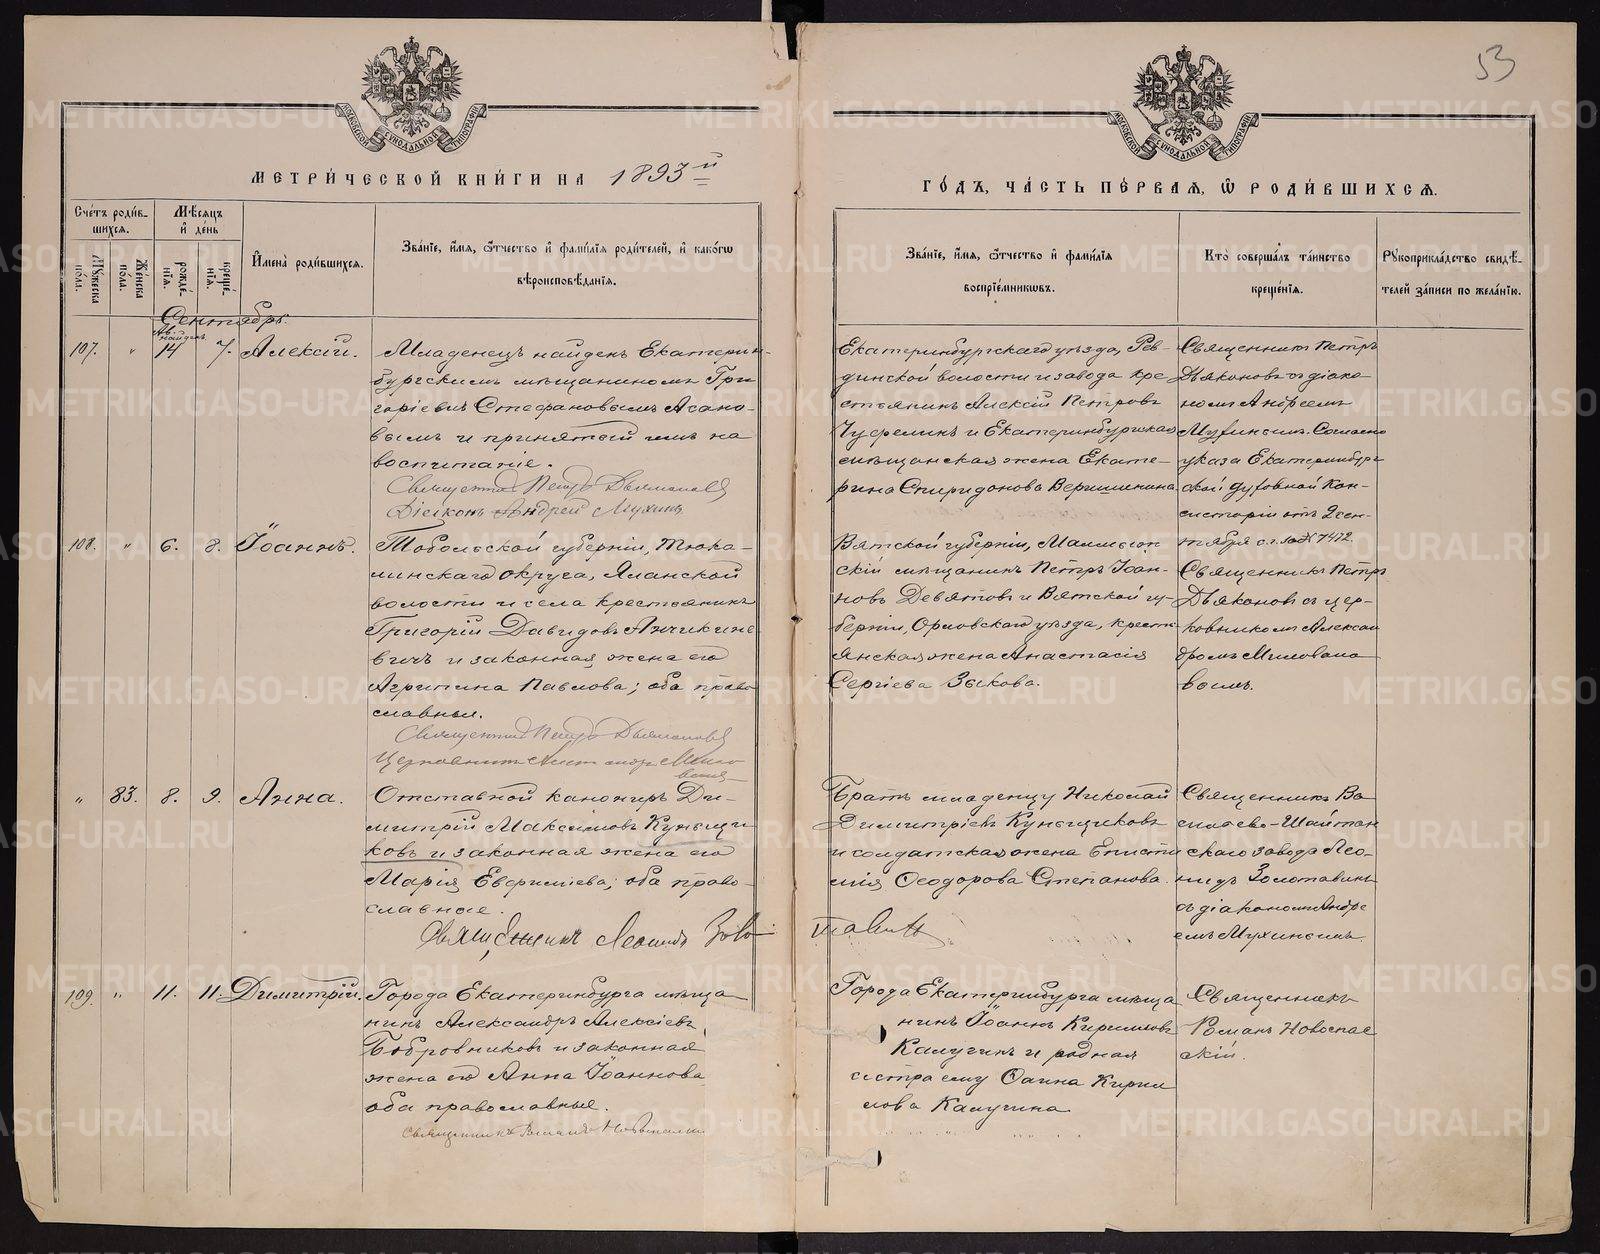 53
МОСКОВСКОЙ СѴНОДАЛЬНОЙ ТИПОГРАФІИ
МОСКОВСКОЙ СѴНОДАЛЬНОЙ ТИПОГРАФІИ
МЕТРИ́ЧЕСКОЙ КНИ́ГИ НА 1893й
ГО́ДЪ, ЧА́СТЬ ПЕ́РВАЯ, Ѡ РОДИ́ВШИХСЯ.
Сче́тъ роди́в-
шихся.
Мꙋ́жеска по́ла.
Же́нска по́ла.
Мѣ́сяцъ
и҆ де́нь
рожде́нїя.
креще́нїя.
И҆мена̀ роди́вшихся.
Зва́нїе, и҆́мя, ѻ҆́тчество и҆ фами́лїя роди́телей, и҆ како́гѡ
вѣроисповѣ́данїя.
Зва́нїе, и҆́мя, ѻ҆́тчество и҆ фами́лїя
воспрїе́мникѡвъ.
Кто̀ соверша́лъ та́инство
креще́нїя.
Рꙋкоприкла́дство свидѣ́-
телей за́писи по жела́нїю.
Сентябрь.
107. " Ав. найденъ 14 7. Алексій.
Младенецъ найденъ Екатерин-
бургскимъ мѣщаниномъ Гри-
горіемъ Стефановымъ Асано-
вымъ и принятый имъ на
воспитаніе.
Священникъ Петръ Дьяконовъ
Діаконъ Андрей Мухинъ
Екатеринбургскаго уѣзда, Рев-
динской волости и завода кре
стьянинъ Алексій Петровъ
и Екатеринбургская
мѣщанская жена Екате-
рина Спиридонова Вершинина
Священникъ Петръ
Дьяконовъ съ діако-
номъ Андреемъ
Мухинымъ. Согласно
указа Екатеринбург
ской духовной Кон-
систоріи отъ 2 сен-
тября с.г. за № 7412.
108. " 6. 8. Іоаннъ.
Тобольской губерніи, Тюка-
линскаго округа, Яланской
волости и села крестьянинъ
Григорій Давидовъ
вичъ и законная жена его
Агрипина Павлова; оба право
славные.
Священникъ Петръ Дьяконовъ
Церковникъ Александръ Мило
вановъ
Вятской губерніи, Малмыж
скій мѣщанинъ Петръ Іоан-
новъ Девятовъ и Вятской гу-
берніи, Орловскаго уѣзда, крестъ
янская жена Анастасія
Сергіева Зыкова.
Священникъ Петръ
Дьяконовъ съ цер-
ковникомъ Алексан
дромъ Милована
вымъ.
" 83. 8. 9. Анна.
Отставной канониръ Ди-
митрій Максимовъ Куньщи
ковъ и законная жена его
Марія Евфиміева; оба право-
славные.
Священникъ Леонидъ Золо
тавинъ
Братъ младенцу Николай
Димитріевъ Куньщиковъ
и солдатская жена Еписти
мія Ѳеодорова Степанова.
Священникъ Ва
сильево-Шайтан
скаго завода Лео-
нидъ Золотавинъ
съ діакономъ Андре
емъ Мухинымъ.
109. " 11. 11. Димитрій.
Города Екатеринбурга мѣща
нинъ Александръ Алексіевъ
Бобровниковъ и законная
жена его Анна Іоаннова
оба православные.
Священникъ Романъ Новоспасскій
Города Екатеринбурга мѣща
нинъ Іоаннъ Кирилловъ
Калугинъ и родная
сестра ему Фаина Кирил
лова Калугина
Священникъ
Романъ Новоспас
скій.
METRIKI.GASO-URAL.RU